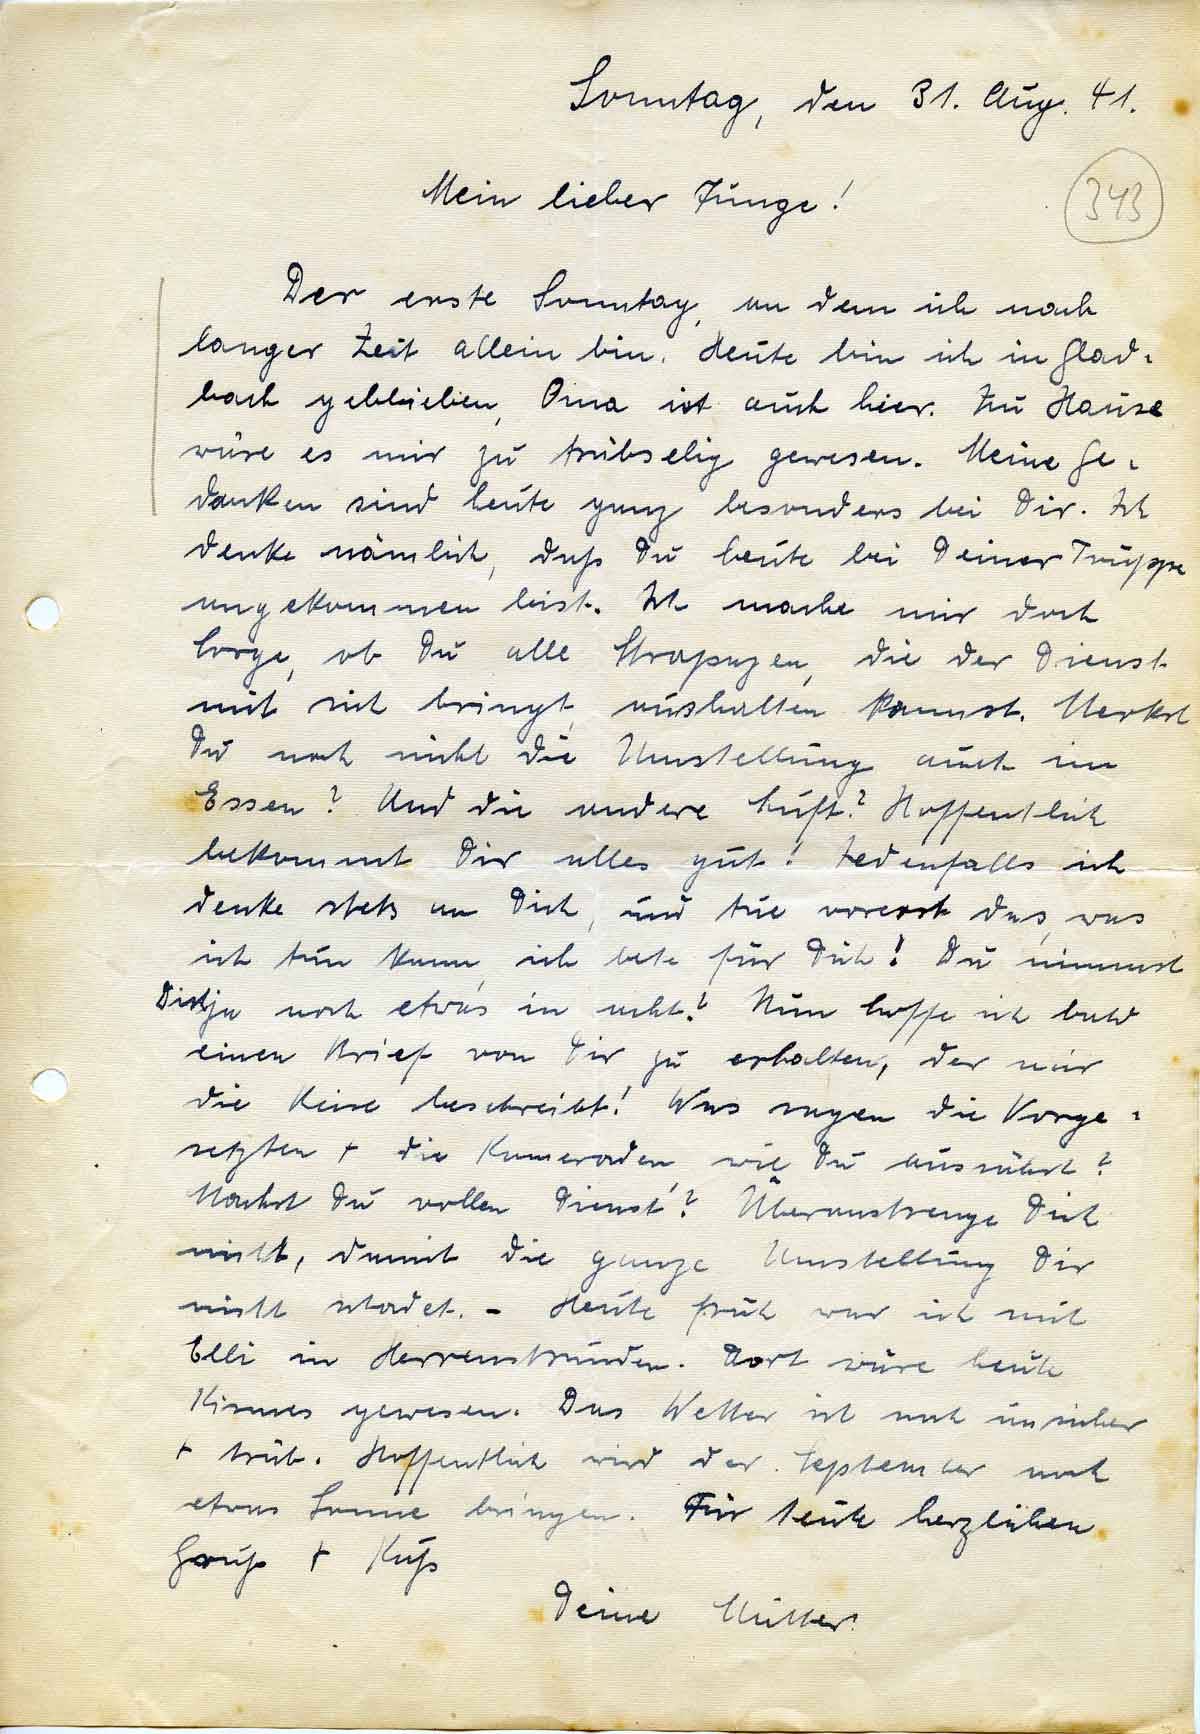 Sonntag, den 31. Aug. 41.
Mein lieber Junge!
343
Der erste Sonntag, an dem ich nach
langer Zeit allein bin. Heute bin ich in Glad-
bach geblieben, Oma ist auch hier. Zu Hause
wäre es mir zu trübselig gewesen. Meine Ge-
danken sind heute ganz besonders bei Dir. Ich
denke nämlich, daß Du heute bei Deiner Truppe
angekommen bist. Ich mache mir doch
Sorge, ob Du alle Strapazen, die der Dienst
mit sich bringt, aushalten kannst. Merkst
Du noch nicht die Umstellung auch im
Essen? Und die andere Luft? Hoffentlich
bekommt Dir alles gut! Jedenfalls ich
denke stets an Dich, und tue vorerst das, was
ich tun kann, ich bete für Dich! Du nimmst
Dich ja noch etwas in acht? Nun hoffe ich bald
einen Brief von Dir zu erhalten, der mir
die Reise beschreibt! Was sagen die Vorge-
setzten + die Kameraden, wie Du aussiehst?
Machst Du vollen Dienst? Überanstrenge Dich
nicht, damit die ganze Umstellung Dir
nicht schadet. - Heute früh war ich mit
Elli in Herrenstrunden. Dort wäre heute
Kirmes gewesen. Das Wetter ist noch unsicher
+ trüb. Hoffentlich wird der September noch
etwas Sonne bringen. Für heute herzlichen
Gruß + Kuß
Deine Mutter.